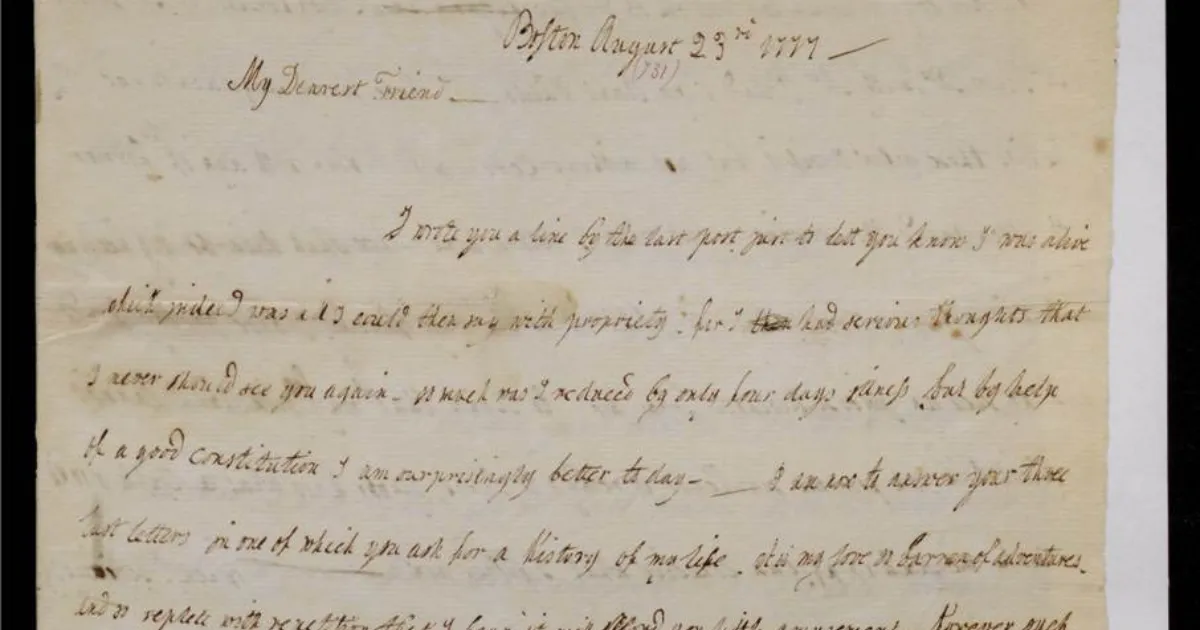 Boston August 23rd 1777 —
(731)
My Dearest Friend —
I wrote you a line by the last post just to lett you know I was alive
which indeed was all I could then say with propriety. for I then had serious thoughts that
I never should see you again – so much was I reduced by only four days illness but by help
of a good constitution I am surprisingly better to day – — I am now to answer your three
last letters in one of which you ask for a history of my life. it is my love so barren of adventures
and so replete with repetition that I fear it will afford you little amusement. However such